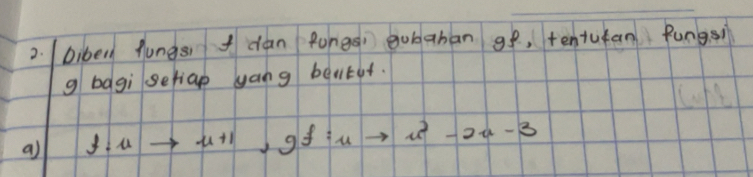 2. Diberi fungsi f dan fungsi gubahan gf, tentukan fungsi
g bagi setiap yang berikut.
a) f : x → x+1 , gf : x → x² - 2x - 3